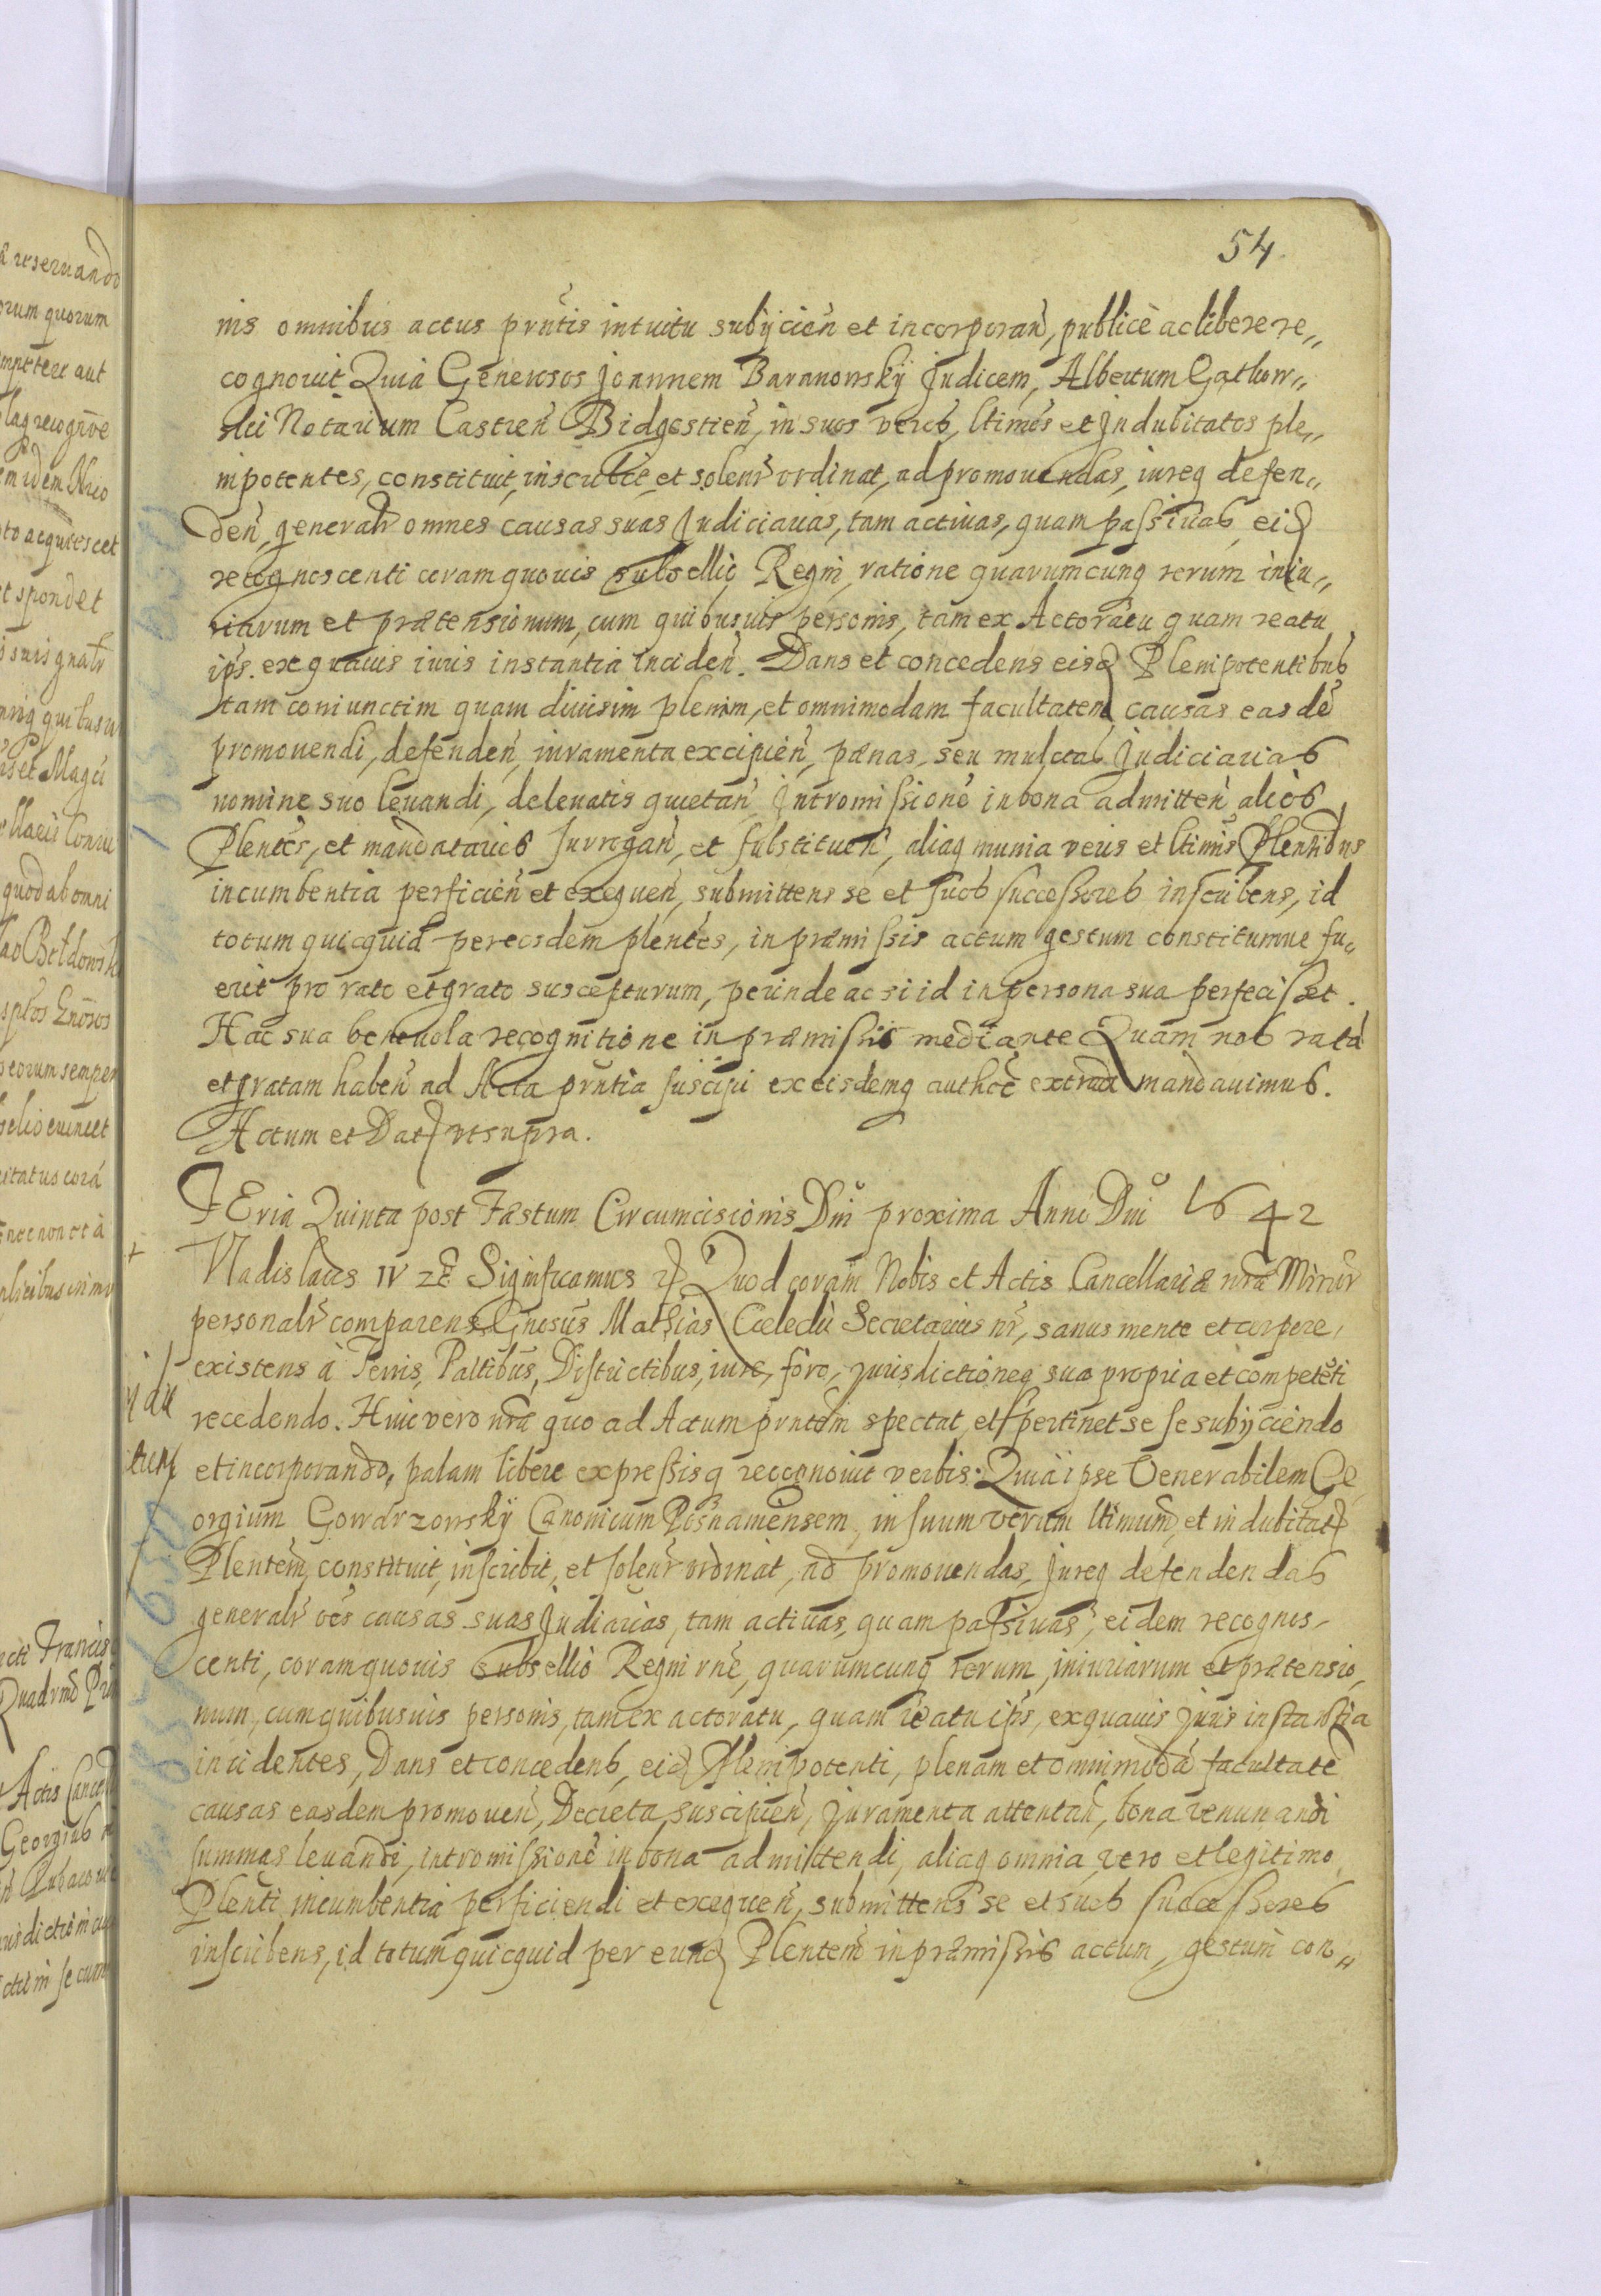 54.
nis omnibus actus prntis intuitu subijcien et incorporan, publice ac libere re„
cognovit Quia Generosos Joannem Baranowskÿ Judicem, Albertum Gathow„
skii Notarium Castren Bidgostien, in suos veros, ltimos et Indubitatos ple„
nipotentes, constituit, inscribit, et solenr ordinat, ad promouendas, iureq defen„
den, generalr omnes causas suas Judiciarias, tam actiuas, quam passiuas, eid
recognoscenti coram quouis subsellio Regni, ratione quarumcunq rerum iniu„
riarum et prætensionum, cum quibusuis personis, tam ex Actoratu quam reatu
ips. ex quauis iuris instantia inciden. Dans et concedens eisd Plenipotentibus
tam coniunctim quam diuisim plenam, et omnimodam facultatem causas easdē
promouendi, defenden, iuramenta excipien, pænas, seu mulctas Judiciarias
nomine suo leuandi, de leuatis quietan Intromissionē in bona admitten alios
Plentes, et mandatarios surrogan, et substituen, aliaq munia veris et ltimis Plentibus
incumbentia perficien et exequen, submittens se et suos successores inscribens, id
totum quicquid per eosdem plentes, in præmissis actum gestum constitumue fu„
erit pro rato et grato suscepturum, perinde ac si id in persona sua perfecisset.
Hac sua beneuola recognitione in præmissis mediante Quam nos ratā
et gratam haben ad Acta prntia suscipi ex eisdemq authce extradi mandauimus.
Actum et Dat ut supra.
FEria Quinta post Fæstum Circumcisionis Dni proxima Anno Dni 1642
+ Vladislaus IV Significamus Quod coram Nobis et Actis Cancellariæ nræ Minor
personalr comparens Gnosus Mathias Cœledii Secretarius nr, sanus mente et corpore,
existens à Terris, Palltibus, Districtibus, iure, foro, Jurisdictioneq sua propria et competēti
recedendo. Huic vero nræ quo ad Actum prntem spectat, et pertinet se se subijciendo
et incorporando, palam libere expressisq recognouit verbis. Quia ipse Venerabilem Ge
orgium Gowarzowskÿ Canonicum Posnaniensem, in suum verum ltimum, et indubitat
Plentem, constituit, inscribit, et solenr ordinat, ad promouendas, Jureq defendendas
generalr oēs causas suas Judiarias, tam actiuas, quam passiuas, eidem recognos-
centi, coram quouis subsellio Regni rne, quarumcunq rerum, iniuriarum et prætensio,
num, cum quibusuis personis, tam ex actoratu, quam reatu ips, ex quauis Juris instantia
incidentes, Dans et concedens, eid Plenipotenti, plenam et omnimodā facultatē
causas easdem promouen, Decreta suscipien, Juramenta attentan, bona
summas leuandi, intromissionē in bona admittendi, aliaq omnia vero et legitimo
Plenti incumbentia perficiendi et exequen, submittens se et suos successores
inscribens, id totum quicquid per eund Plentem in præmissis actum, gestum con„